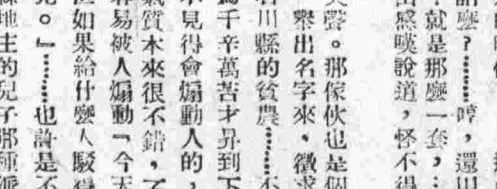 話麼？……哼，還
才就是那麼一套，…
出感嘆說道，怪不得
笑聲。那傢伙也是個
舉出名字來，徵求
石川縣的貧農……不
萬千辛萬苦才昇到下
不見得會煽動人的，
氣質本來很不錯，了
容易被人煽動『今天
但如果給什麼人駁得
見。』……也許是不
緣地主的兒子那種派